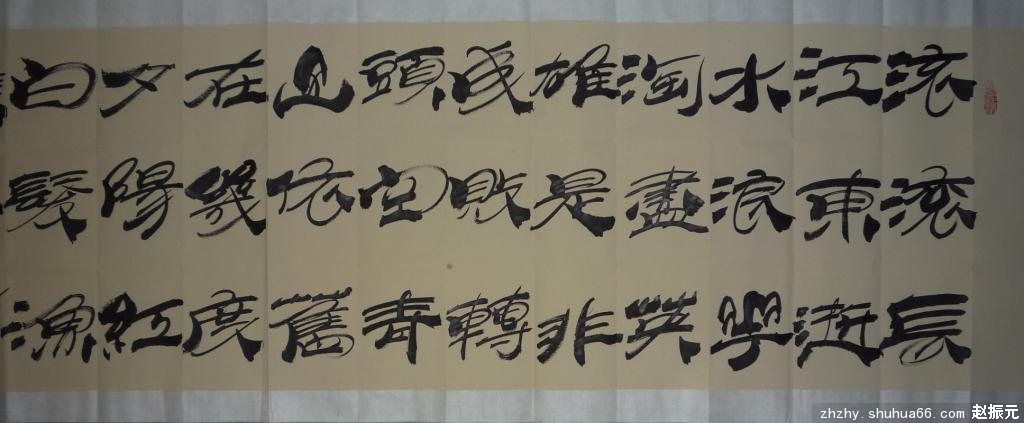 滚滚長
江東逝
水浪
淘盡英
雄是非
成敗轉
頭空青
山依舊
在幾度
夕陽紅
白髮漁
zhzhy.shuhua66.com 赵振元